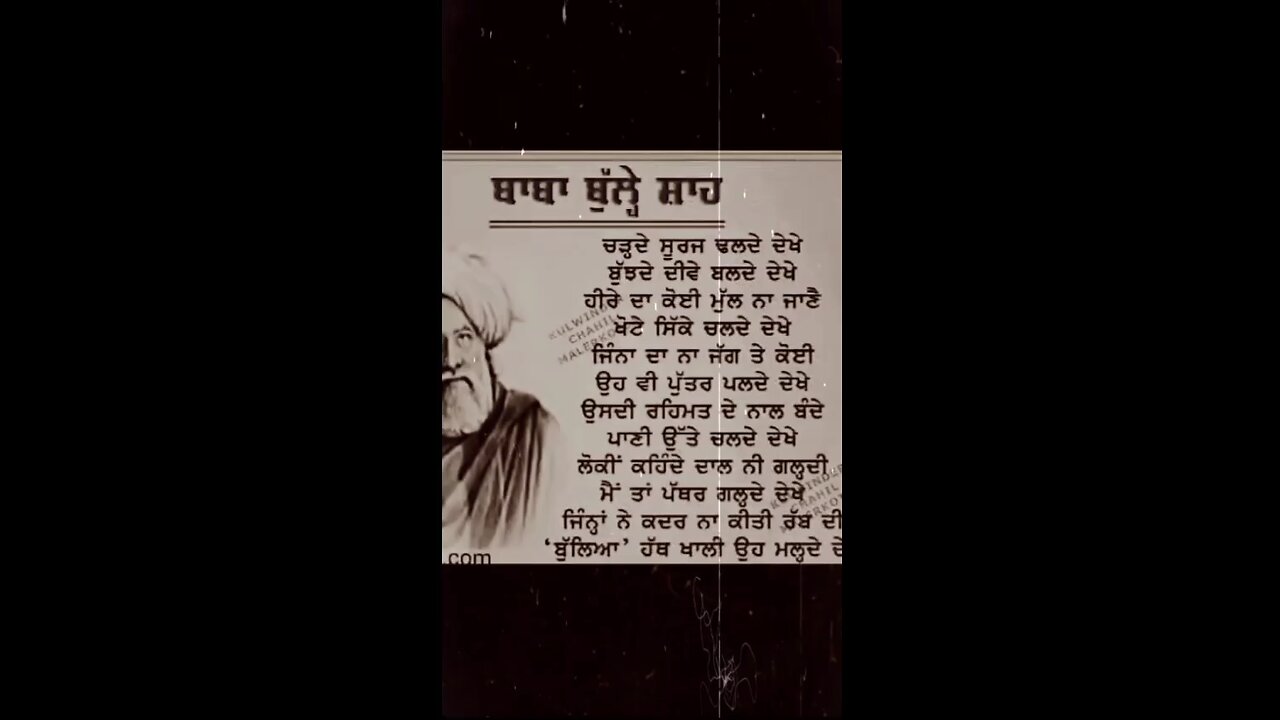 ਬਾਬਾ ਬੁੱਲ੍ਹੇ ਸ਼ਾਹ
ਚੜ੍ਹਦੇ ਸੂਰਜ ਢਲਦੇ ਦੇਖੇ
ਬੁੱਝਦੇ ਦੀਵੇ ਬਲਦੇ ਦੇਖੇ
ਹੀਰੇ ਦਾ ਕੋਈ ਮੁੱਲ ਨਾ ਜਾਣੈ
ਖੋਟੇ ਸਿੱਕੇ ਚਲਦੇ ਦੇਖੇ
ਜਿੰਨਾ ਦਾ ਨਾ ਜੱਗ ਤੇ ਕੋਈ
ਉਹ ਵੀ ਪੁੱਤਰ ਪਲਦੇ ਦੇਖੇ
ਉਸਦੀ ਰਹਿਮਤ ਦੇ ਨਾਲ ਬੰਦੇ
ਪਾਣੀ ਉੱਤੇ ਚਲਦੇ ਦੇਖੇ
ਲੋਕੀਂ ਕਹਿੰਦੇ ਦਾਲ ਨੀ ਗਲ੍ਹਦੀ
ਮੈਂ ਤਾਂ ਪੱਥਰ ਗਲ੍ਹਦੇ ਦੇਖੇ
ਜਿੰਨ੍ਹਾਂ ਨੇ ਕਦਰ ਨਾ ਕੀਤੀ ਰੱਬ ਦੀ
‘ਬੁੱਲਿਆ’ ਹੱਥ ਖਾਲੀ ਉਹ ਮਲ੍ਹਦੇ ਦੇ
.com
KULWINDER
CHAHIL